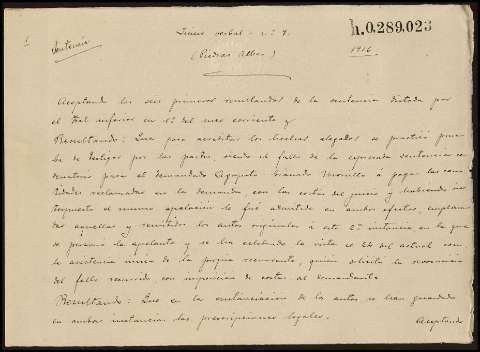 h.0.289.023
1
Sentencia
Juicio verbal - n.º 7.
1916
(Piedras Albas)
Aceptando los seis primeros resultandos de la sentencia dictada por
el Tral inferior en 1º del mes corriente y
Resultando: Que para acreditar los hechos alegados se practicó prue-
ba de testigos por las partes, siendo el fallo de la expresada sentencia con-
denatorio para el demandado Morcillo á pagar las can-
tidades reclamadas en la demanda, con las costas del juicio y habiendo in-
terpuesto el mismo apelación le fué admitida en ambos efectos, emplazan-
das aquellas y remitidos los autos originales á esta 2ª instancia en la que
se personó la apelante y se ha celebrado la vista el 24 del actual con
la asistencia única de la propia recurrente, quien solicitó la revocación
del fallo recurrido, con imposición de costas al demandante
Resultando: Que en la sustanciación de los autos se han guardado
en ambas instancias las prescripciones legales.
Aceptando